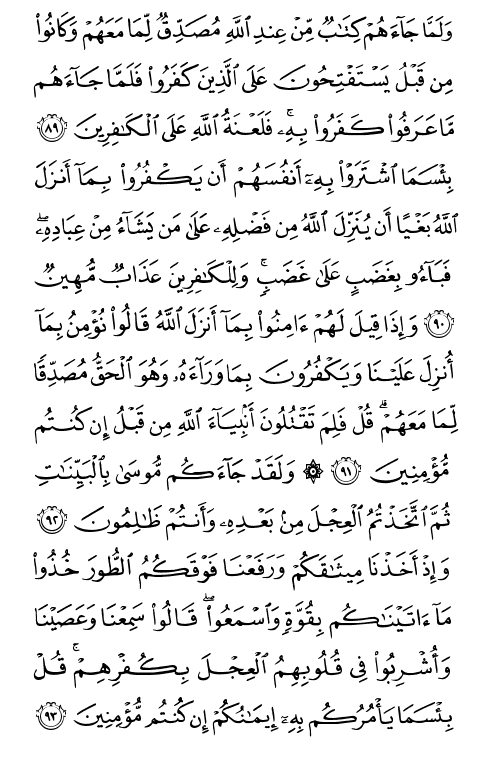 وَلَمَّا جَآءَهُمۡ كِتَٰبٞ مِّنۡ عِندِ ٱللَّهِ مُصَدِّقٞ لِّمَا مَعَهُمۡ وَكَانُواْ
مِن قَبۡلُ يَسۡتَفۡتِحُونَ عَلَى ٱلَّذِينَ كَفَرُواْ فَلَمَّا جَآءَهُم
مَّا عَرَفُواْ كَفَرُواْ بِهِۦۚ فَلَعۡنَةُ ٱللَّهِ عَلَى ٱلۡكَٰفِرِينَ ٨٩
بِئۡسَمَا ٱشۡتَرَوۡاْ بِهِۦٓ أَنفُسَهُمۡ أَن يَكۡفُرُواْ بِمَآ أَنزَلَ
ٱللَّهُ بَغۡيًا أَن يُنَزِّلَ ٱللَّهُ مِن فَضۡلِهِۦ عَلَىٰ مَن يَشَآءُ مِنۡ عِبَادِهِۦۖ
فَبَآءُو بِغَضَبٍ عَلَىٰ غَضَبٖۚ وَلِلۡكَٰفِرِينَ عَذَابٞ مُّهِينٞ
٩٠ وَإِذَا قِيلَ لَهُمۡ ءَامِنُواْ بِمَآ أَنزَلَ ٱللَّهُ قَالُواْ نُؤۡمِنُ بِمَآ
أُنزِلَ عَلَيۡنَا وَيَكۡفُرُونَ بِمَا وَرَآءَهُۥ وَهُوَ ٱلۡحَقُّ مُصَدِّقٗا
لِّمَا مَعَهُمۡۗ قُلۡ فَلِمَ تَقۡتُلُونَ أَنۢبِيَآءَ ٱللَّهِ مِن قَبۡلُ إِن كُنتُم
مُّؤۡمِنِينَ ٩١ ۞ وَلَقَدۡ جَآءَكُم مُّوسَىٰ بِٱلۡبَيِّنَٰتِ
ثُمَّ ٱتَّخَذۡتُمُ ٱلۡعِجۡلَ مِنۢ بَعۡدِهِۦ وَأَنتُمۡ ظَٰلِمُونَ ٩٢
وَإِذۡ أَخَذۡنَا مِيثَٰقَكُمۡ وَرَفَعۡنَا فَوۡقَكُمُ ٱلطُّورَ خُذُواْ
مَآ ءَاتَيۡنَٰكُم بِقُوَّةٖ وَٱسۡمَعُواْۖ قَالُواْ سَمِعۡنَا وَعَصَيۡنَا
وَأُشۡرِبُواْ فِي قُلُوبِهِمُ ٱلۡعِجۡلَ بِكُفۡرِهِمۡۚ قُلۡ
بِئۡسَمَا يَأۡمُرُكُم بِهِۦٓ إِيمَٰنُكُمۡ إِن كُنتُم مُّؤۡمِنِينَ ٩٣